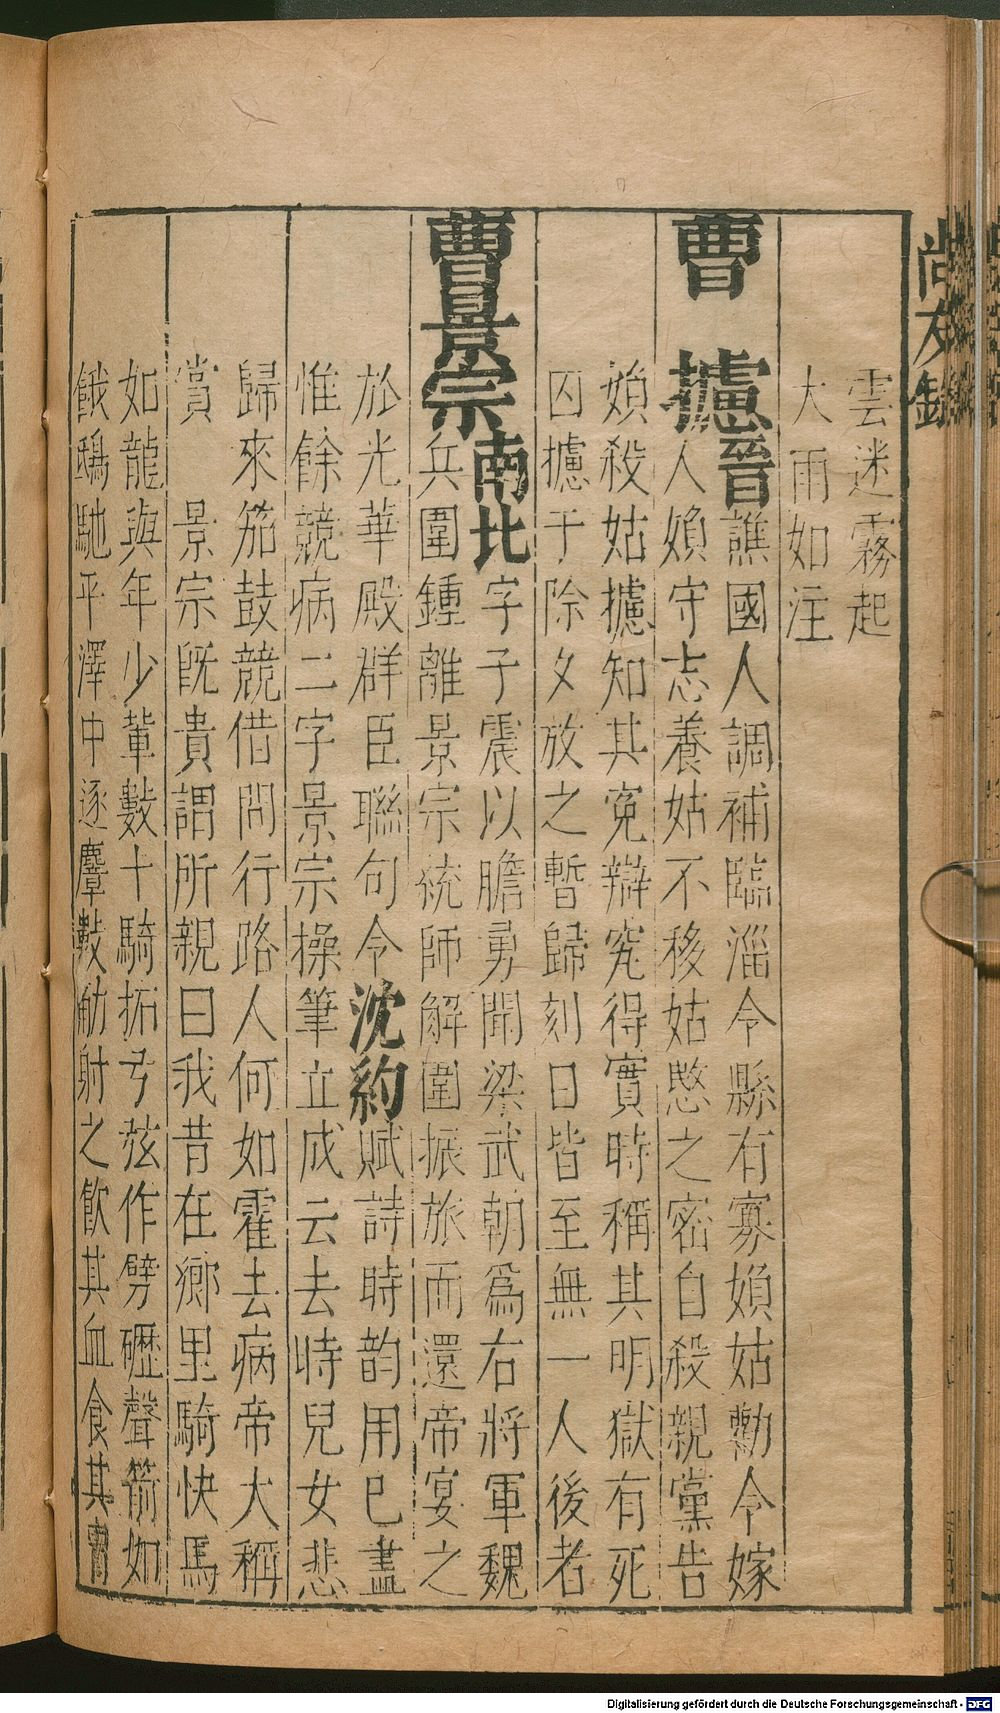 尚友錄
雲迷霧起
大雨如注
曹攄晉譙國人調補臨淄令縣有寡媍姑勸令嫁
人媍守志養姑不移姑愍之密自殺親黨告
媍殺姑攄知其寃辯究得實時稱其明獄有死
囚攄于除夕放之暫歸刻日皆至無一人後者
曹景宗南北字子震以膽勇聞梁武朝爲右將軍魏
兵圍鍾離景宗統師解圍振旅而還帝宴之
於光華殿群臣聯句令沈約賦詩時韵用已盡
惟餘競病二字景宗操筆立成云去時兒女悲
歸來笳鼓競借問行路人何如霍去病帝大稱
賞 景宗旣貴謂所親曰我昔在鄉里騎快馬
如龍與年少輩數十騎拓弓弦作劈礰聲箭如
餓鴟馳平澤中逐麞數肋射之飲其血食其
Digitalisierung gefördert durch die Deutsche Forschungsgemeinschaft - DFG